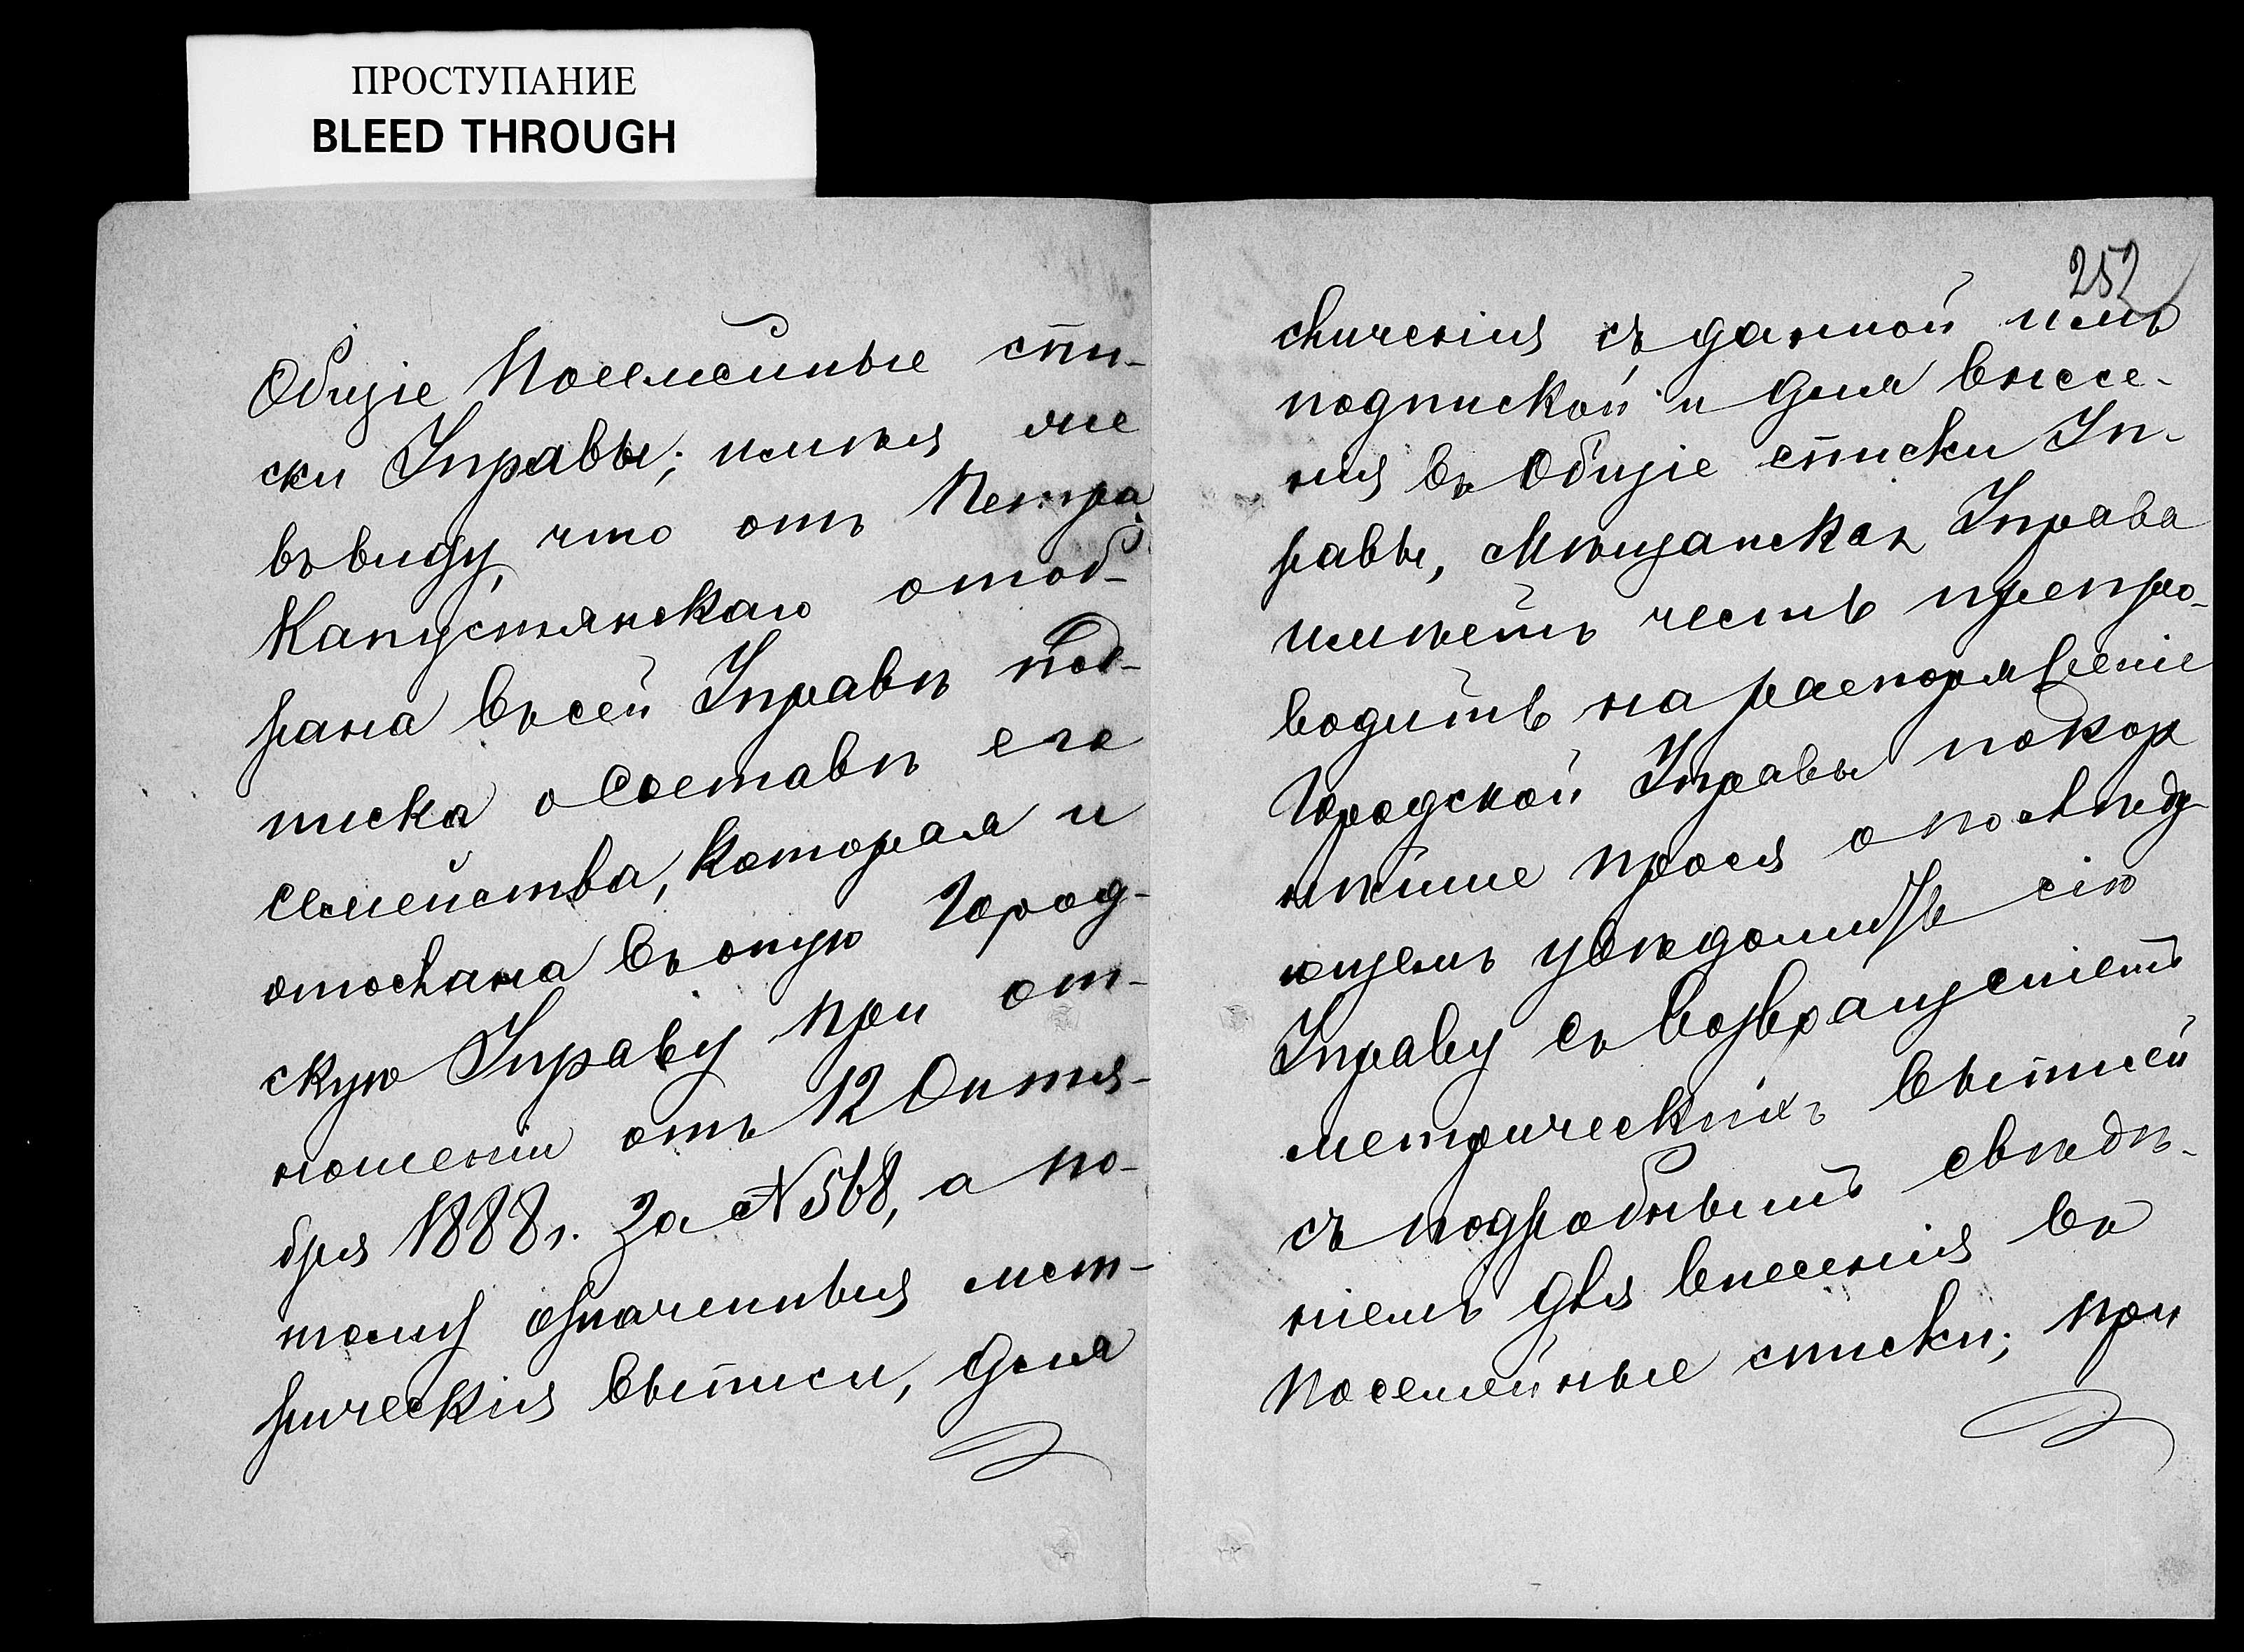 ПРОСТУПАНИЕ
BLEED THROUGH
Общіе Посемейные спи-
ски Управы; имѣя же
въ виду, что отъ Петра
Капустянскаго отоб-
рана въ сей Управѣ под-
писка о составѣ его
семейства, которая и
отослана въ оную Город-
скую Управу при от-
ношеніи отъ 12 Октя-
бря 1888 г. за № 568, а по-
тому означенныя мет-
рическія выписи, для
252
сличенія съ данной имъ
подпиской и для внесе-
нія въ Общіе списки Уп-
равы, Мѣщанская Управа
имѣетъ честь препро-
водить на распоряженіе
Городской Управы покор
нѣйше прося о послѣду-
ющемъ увѣдомить сію
Управу съ возвращеніемъ
метрическихъ выписей
съ подробнымъ свѣдѣ-
ніемъ для внесенія въ
посемейные списки; при